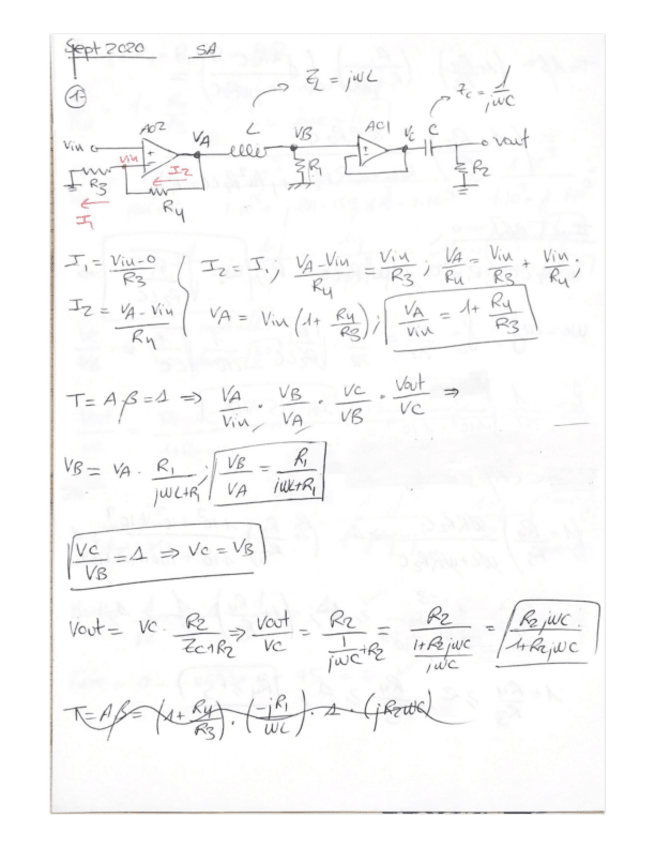 Sept 2020 SA
1-
ZL = jωL
Zc = 1/jωC
Vin AO2 VA L VB AO1 VC C Vout
Vin I2 R1 R2
R3 R4
I1
I1 = (Vin-0)/R3 I2 = I1, (VA-Vin)/R4 = Vin/R3 ; VA/R4 = Vin/R3 + Vin/R4 ;
I2 = (VA-Vin)/R4 VA = Vin (1 + R4/R3) ; VA/Vin = 1 + R4/R3
T = Aβ = 1 ⇒ VA/Vin · VB/VA · VC/VB · Vout/VC ⇒
VB = VA · R1/(jωL+R1) ; VB/VA = R1/(jωL+R1)
VC/VB = 1 ⇒ VC = VB
Vout = VC · R2/(ZC+R2) ⇒ Vout/VC = R2/(1/jωC + R2) = R2/((1+R2jωC)/jωC) = R2jωC/(1+R2jωC)
T = Aβ = (1 + R4/R3) · (-jR1/ωL) · 1 · (jR2ωC)